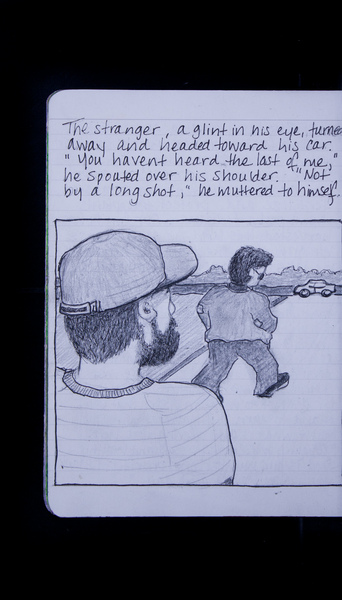 The stranger, a glint in his eye, turned
away and headed toward his car.
"You havent heard the last of me,"
he spouted over his shoulder. "Not
by a long shot," he muttered to himself.